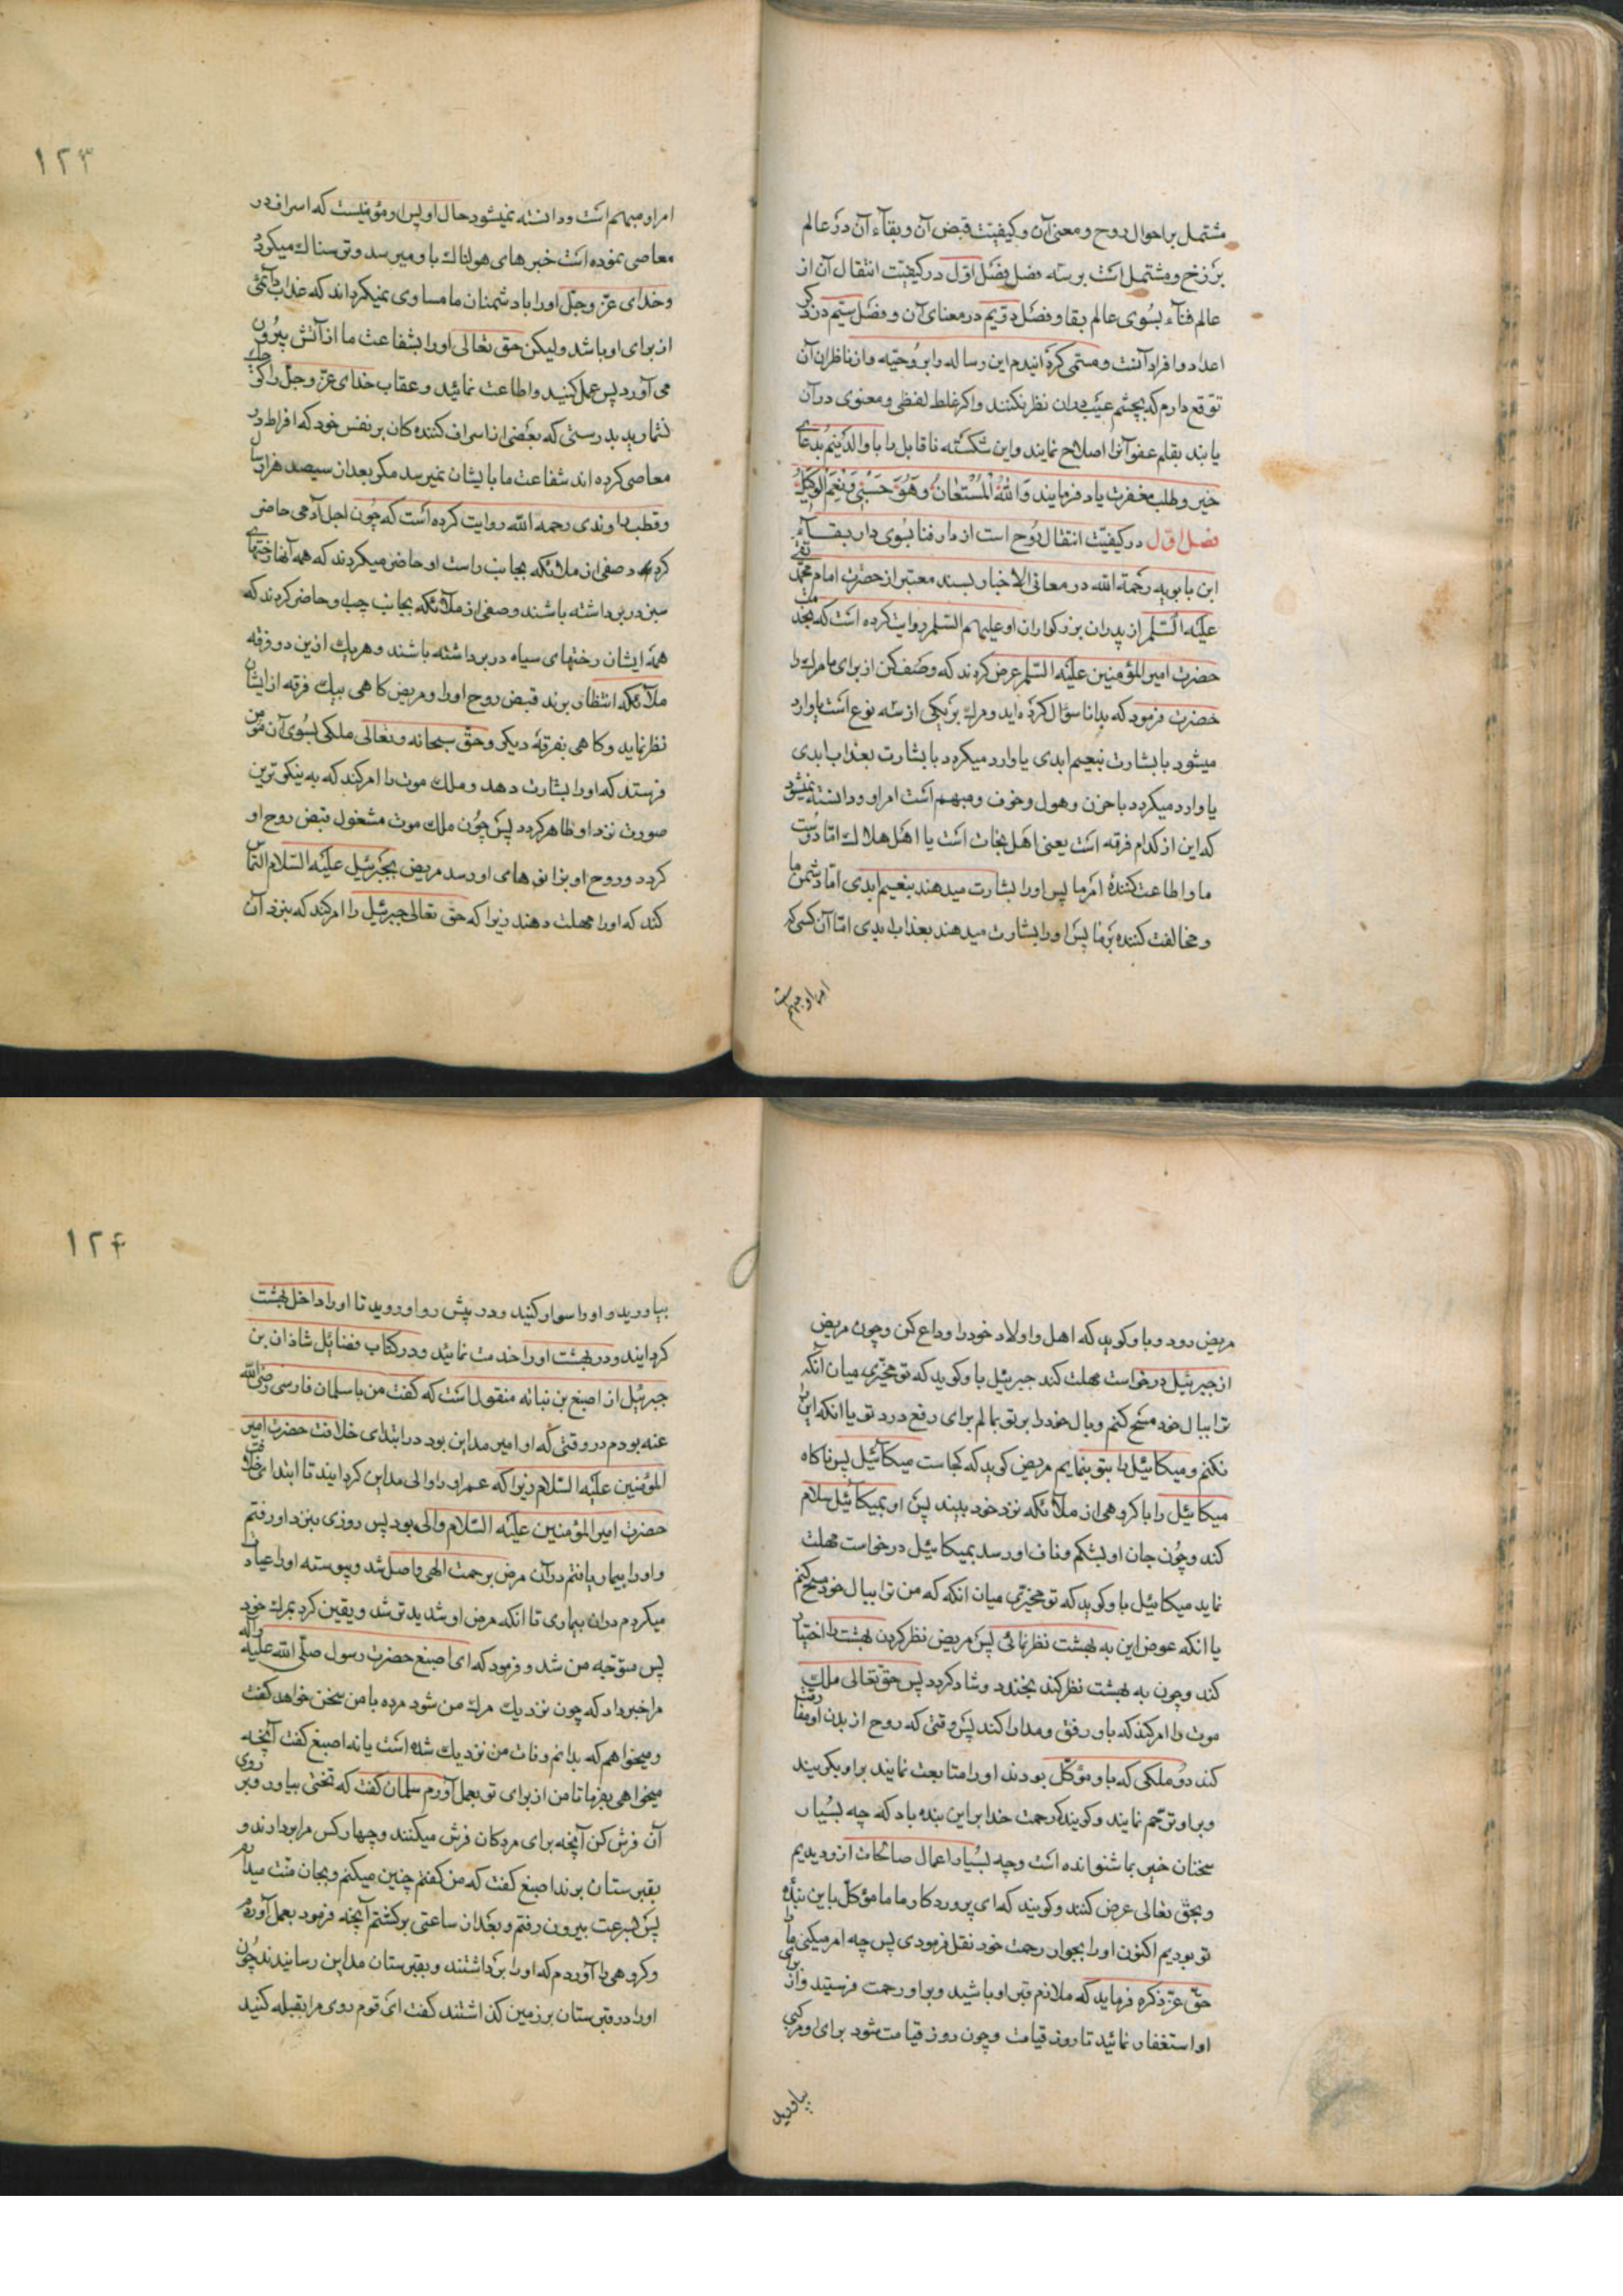 مشتمل بر احوال روح و معنی آن و کیفیّت قبض آن و بقآء آن در عالم
برزخ و مشتمل است بر سه فصل فصل اوّل در کیفیّت انتقال آن از
عالم فنآء بسوی عالم بقا و فصل دوّیم در معنای آن و فصل سیّم در ذکر
اعداد و افراد آنست و مسمّی کردانیدم این رساله را بروحیّه و از ناظران آن
توقع دارم که بچشم عیب بدان نظر نکنند و اکر غلط لفظی و معنوی در آن
یابند بقلم عفو آنرا اصلاح نمایند و این شکسته ناقابل را با والدینم بدعای
خیر و طلب مغفرت یاد فرمایند وَاللّهُ الْمُسْتَعٰانُ وَهُوَ حَسْبِی وَنِعْمَ الْوَکِیْلُ
فصل اوّل در کیفیّت انتقال روح است از دار فنا بسوی دار بقـآء
ابن بابویه رحمة الله در معانی الاخبار بسند معتبر از حضرت امام محمّد تقی
علیه السّلم از پدران بزرکواران او علیهم السّلم روایت کرده است که بخدمت
حضرت امیر المؤمنین علیه السّلم عرض کردند که وصف کن از برای ما مرك را
حضرت فرمود که بدانا سؤال کرده اید و مرك بر یکی از سه نوع است یا وارد
میشود با بشارت بنعیم ابدی یا وارد میکردد با بشارت بعذاب ابدی
یا وارد میکردد با حزن و هول و خوف و مبهم است امر او و دانسته نمیشود
که این از کدام فرقه است یعنی اهل نجات است یا اهل هلاك امّا دوست
ما و اطاعت کنندهٔ امر ما پس او را بشارت میدهند بنعیم ابدی امّا دشمن ما
و مخالفت کننده بر ما پس او را بشارت میدهند بعذاب ابدی امّا آن کسی که
امر او مبهم است
۱۲۳
امر او مبهم است و دانسته نمیشود حال او پس او مؤمنیست که اسراف در
معاصی نموده است خبرهای هولناك باو میرسد و ترسناك میکردد
و خدای عزّ و جلّ او را با دشمنان ما مساوی نمیکرداند که عذاب دآئمی
از برای او باشد و لیکن حق تعالی او را بشفاعت ما از آتش بیرون
می آورد پس عمل کنید و اطاعت نمائید و عقاب خدای عزّ و جلّ را کوچك
نشمارید بدرستی که بعضی از اسراف کننده کان بر نفس خود که افراط در
معاصی کرده اند شفاعت ما بایشان نمیرسد مکر بعد از سیصد هزار سال
و قطب راوندی رحمه الله روایت کرده است که چون اجل آدمی حاضر
کردد صفی از ملائکه بجانب راست او حاضر میکردند که همه آنها رختهای
سبز در بر داشته باشند و صفی از ملآئکه بجانب چپ او حاضر کردند که
همهٔ ایشان رختهای سیاه در بر داشته باشند و هریك ازین دو فرقه
ملآئکه انتظار برند قبض روح او را و مریض کاهی بیك فرقه از ایشان
نظر نماید و کاهی بفرقهٔ دیکر و حقّ سبحانه و تعالی ملکی بسوی آن مؤمن
فرستد که او را بشارت دهد و ملك موت را امر کند که به نیکوترین
صورت نزد او ظاهر کردد پس چون ملك موت مشغول قبض روح او
کردد و روح او بزانوهای او رسد مریض بجبرئیل علیه السّلام التماس
کند که او را مهلت دهند زیرا که حق تعالی جبرئیل را امر کند که بنزد آن
مریض رود و باو کوید که اهل و اولاد خود را وداع کن و چون مریض
از جبرئیل درخواست مهلت کند جبرئیل باو کوید که تو مخیّری میان آنکه
ترا ببال خود مسح کنم و بال خود را بر تو بمالم برای رفع درد تو یا انکه این
نکنم و میکائیل را بتو بنمایم مریض کوید که کجاست میکآئیل پس ناکاه
میکائیل را با کروهی از ملآئکه نزد خود ببیند پس او بمیکائیل سلام
کند و چون جان او بشکم و ناف او رسد بمیکائیل درخواست مهلت
نماید میکائیل باو کوید که تو مخیّری میان انکه که من ترا ببال خود مسح کنم
یا انکه عوض این به بهشت نظر نمائی پس مریض نظر کردن بهشت را اختیار
کند و چون به بهشت نظر کند بخندد و شاد کردد پس حق تعالی ملك
موت را امر کند که باو رفق و مدارا کند پس وقتی که روح از بدن او مفارقت
کند دو ملکی که باو مؤکّل بودند او را متابعت نمایند بر او بکریند
و بر او ترحّم نمایند و کویند که رحمت خدا بر این بنده باد که چه بسیار
سخنان خیر بما شنوانده است و چه بسیار اعمال صالحات ازو دیدیم
و بحقّ تعالی عرض کنند و کویند که ای پروردکار ما ما مؤکّل باین بندهٔ
تو بودیم اکنون او را بجوار رحمت خود نقل فرمودی پس چه امر میکنی ما را
حقّ عزّ ذکره فرماید که ملازم قبر او باشید و بر او رحمت فرستید و از برای
او استغفار نمائید تا روز قیامت و چون روز قیامت شود برای او مرکبی
بیاورید
۱۲۴
بیاورید و او را سوار کنید و در پیش رو او روید تا او را داخل بهشت
کردایند و در بهشت او را خدمت نمائید و در کتاب فضائل شاذان بن
جبرئیل از اصبغ بن نباته منقول است که کفت من با سلمان فارسی رضی الله
عنه بودم در وقتی که او امیر مداین بود در ابتدای خلافت حضرت امیر
المؤمنین علیه السّلام زیرا که عمر او را والی مداین کردایند تا ابتدای خلافت
حضرت امیر المؤمنین علیه السّلام والی بود پس روزی بنزد او رفتم
و او را بیمار یافتم در آن مرض برحمت الهی واصل شد و پیوسته او را عیادت
میکردم در ان بیماری تا انکه مرض او شدید تر شد و یقین کرد بمرك خود
پس متوجّه من شد و فرمود که ای اصبغ حضرت رسول صلّی الله علیه واله
مرا خبر داد که چون نزدیك مرك من شود مرده با من سخن خواهد کفت
و میخواهم که بدانم وفات من نزدیك شده است یا نه اصبغ کفت آنچه
میخواهی بفرما تا من از برای تو بعمل آورم سلمان کفت که تختی بیاور و بر روی
آن فرش کن آنچه برای مردکان فرش میکنند و چهار کس مرا بردارند و
بقبرستان برند اصبغ کفت که من کفتم چنین میکنم و بجان منّت میدارم
پس بسرعت بیرون رفتم و بعد از ساعتی برکشتم آنچه فرمود بعمل آوردم
و کروهی را آوردم که او را برداشتند و بقبرستان مداین رسانیدند چون
او را در قبرستان بر زمین کذاشتند کفت ای قوم روی مرا بقبله کنید